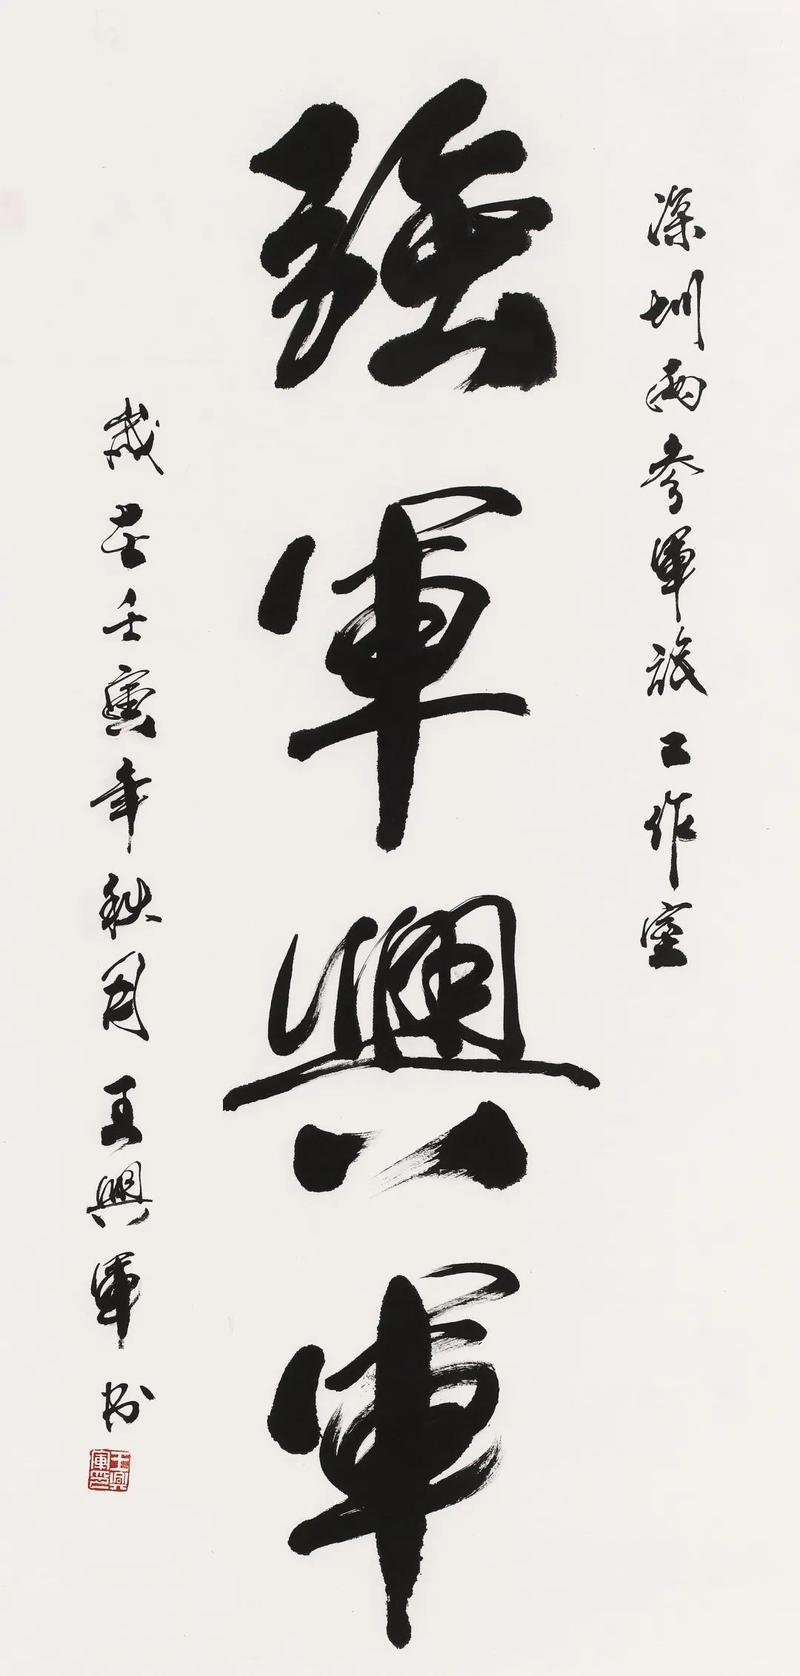 深圳兩參軍旅工作室
強軍興軍
歲在壬寅年秋月王興軍書
王興軍印